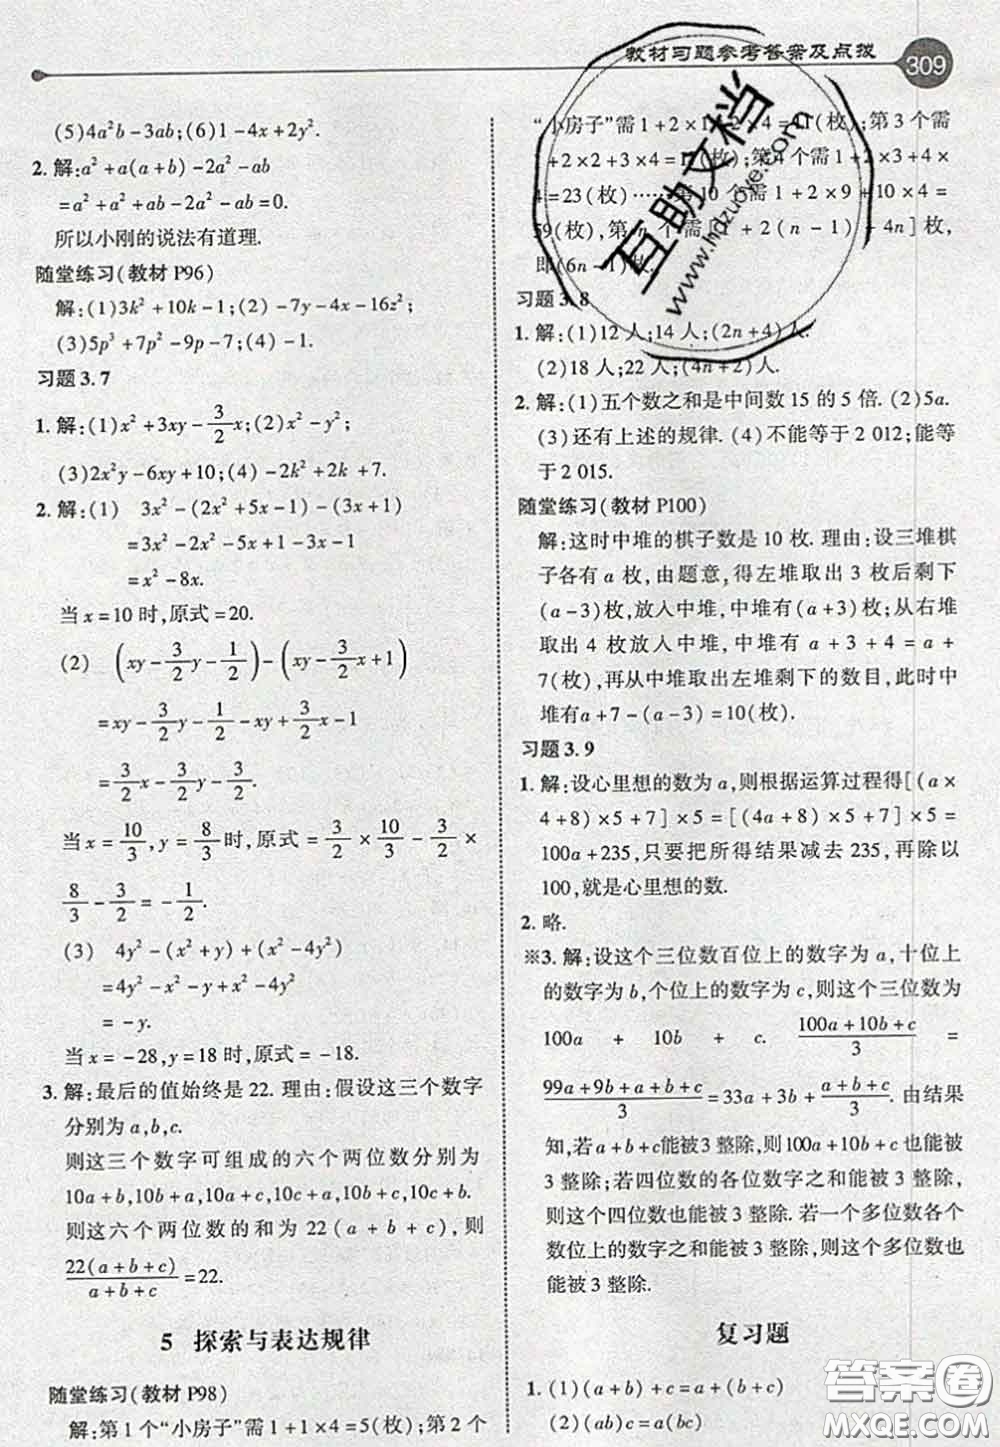 教材习题参考答案及点拨 309
(5)4a²b-3ab;(6)1-4x+2y².
2. 解:a²+a(a+b)-2a²-ab
=a²+a²+ab-2a²-ab=0.
所以小刚的说法有道理.
随堂练习(教材 P96)
解:(1)3k²+10k-1;(2)-7y-4x-16z²;
(3)5p³+7p²-9p-7;(4)-1.
习题 3.7
1. 解:(1)x²+3xy-3/2x;(2)x²-y²;
(3)2x²y-6xy+10;(4)-2k²+2k+7.
2. 解:(1) 3x²-(2x²+5x-1)-(3x+1)
=3x²-2x²-5x+1-3x-1
=x²-8x.
当x=10时,原式=20.
(2) (xy-3/2y-1/2)-(xy-3/2x+1)
=xy-3/2y-1/2-xy+3/2x-1
=3/2x-3/2y-3/2.
当x=10/3,y=8/3时,原式=3/2×10/3-3/2×
8/3-3/2=-1/2.
(3) 4y²-(x²+y)+(x²-4y²)
=4y²-x²-y+x²-4y²
=-y.
当x=-28,y=18时,原式=-18.
3. 解:最后的值始终是22. 理由:假设这三个数字
分别为a,b,c.
则这三个数字可组成的六个两位数分别为
10a+b,10b+a,10a+c,10c+a,10b+c,10c+b.
则这六个两位数的和为22(a+b+c),则
22(a+b+c)/a+b+c=22.
5 探索与表达规律
随堂练习(教材 P98)
解:第1个“小房子”需1+1×4=5(枚);第2个
“小房子”需1+2×1+2×4=11(枚);第3个需
1+2×2+3×4=17(枚);第4个需1+2×3+4×
4=23(枚)……第10个需1+2×9+10×4=
59(枚),第n个需[1+2(n-1)+4n]枚,
即(6n-1)枚.
习题 3.8
1. 解:(1)12人;14人;(2n+4)人.
(2)18人;22人;(4n+2)人.
2. 解:(1)五个数之和是中间数15的5倍. (2)5a.
(3)还有上述的规律. (4)不能等于2 012;能等
于2 015.
随堂练习(教材 P100)
解:这时中堆的棋子数是10枚. 理由:设三堆棋
子各有a枚,由题意,得左堆取出3枚后剩余
(a-3)枚,放入中堆,中堆有(a+3)枚;从右堆
取出4枚放入中堆,中堆有a+3+4=a+
7(枚),再从中堆取出左堆剩下的数目,此时中
堆有a+7-(a-3)=10(枚).
习题 3.9
1. 解:设心里想的数为a,则根据运算过程得[(a×
4+8)×5+7]×5=[(4a+8)×5+7]×5=
100a+235,只要把所得结果减去235,再除以
100,就是心里想的数.
2. 略.
※3. 解:设这个三位数百位上的数字为a,十位上
的数字为b,个位上的数字为c,则这个三位数为
100a+10b+c. 100a+10b+c/3=
99a+9b+a+b+c/3=33a+3b+a+b+c/3. 由结果
知,若a+b+c能被3整除,则100a+10b+c也能
被3整除;若四位数的各位数字之和能被3整除,
则这个四位数也能被3整除. 若一个多位数各个
数位上的数字之和能被3整除,则这个多位数也
能被3整除.
复习题
1. (1)(a+b)+c=a+(b+c)
(2)(ab)c=a(bc)
互助文档
www.hdzuoye.com
答案圈
MXQE.COM